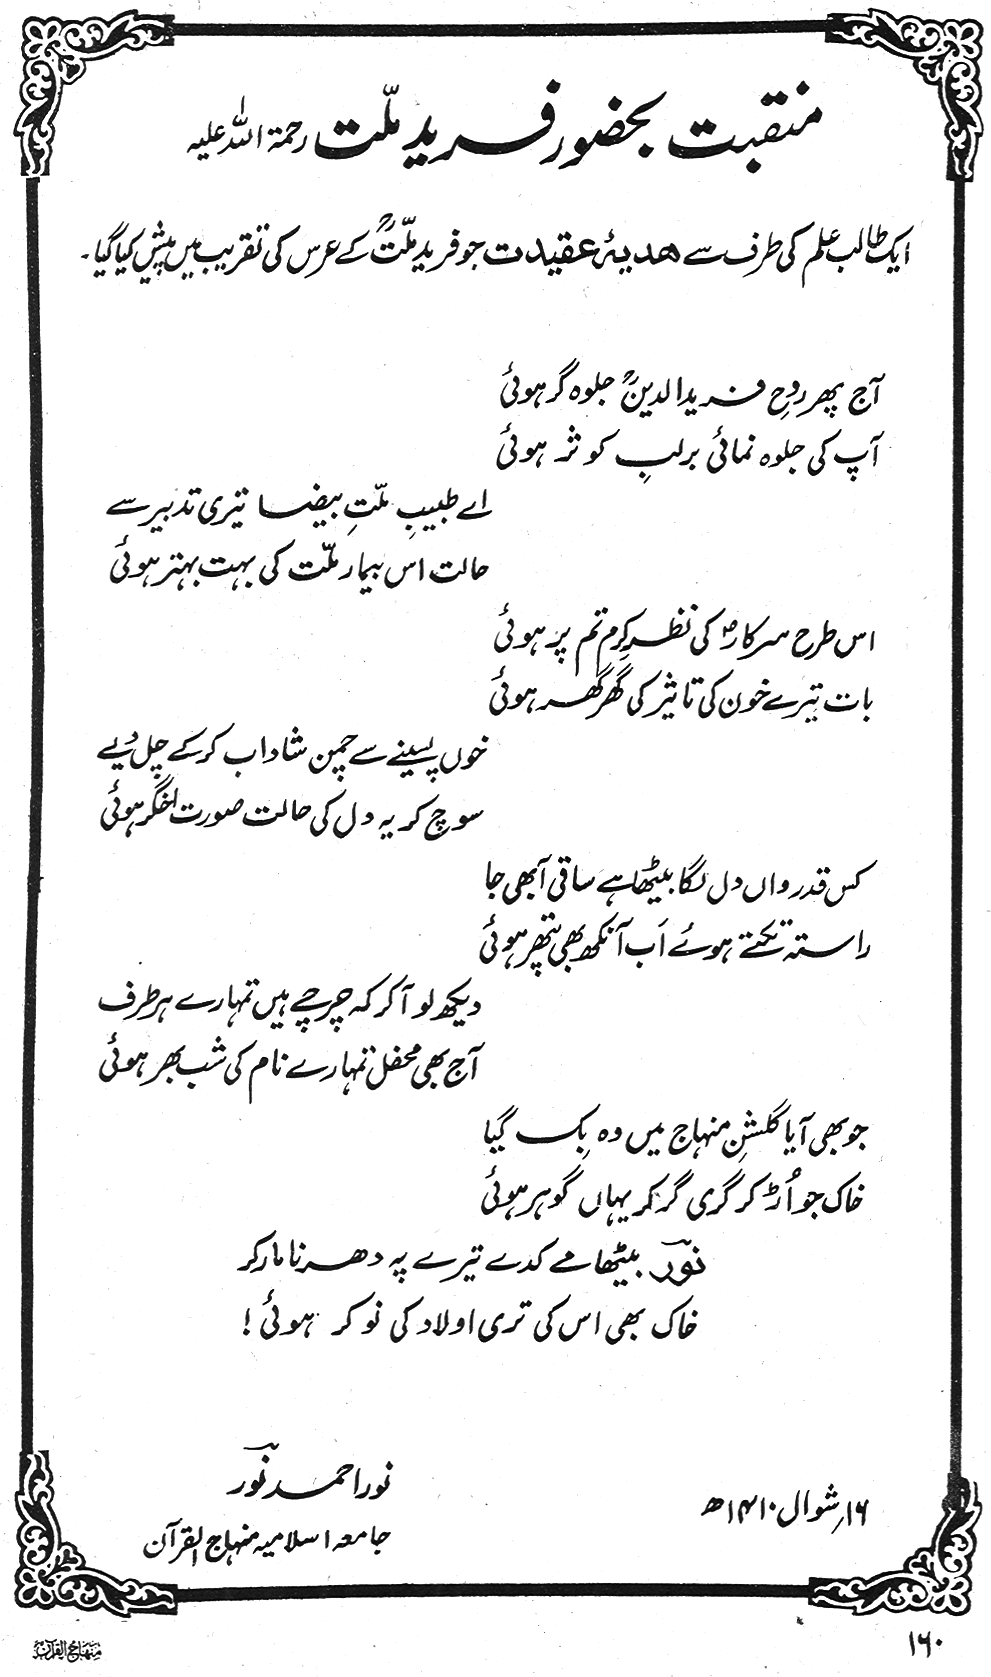 منقبت بحضور فریدِ ملّت رحمۃ اللہ علیہ
ایک طالب علم کی طرف سے ھدیۂ عقیدت جو فرید ملّتؒ کے عرس کی تقریب میں پیش کیا گیا۔
آج پھر روحِ فریدالدینؒ جلوہ گر ہوئی
آپ کی جلوہ نمائی برلبِ کوثر ہوئی
اے طبیبِ ملّتِ بیضا تیری تدبیر سے
حالت اس بیمار ملّت کی بہت بہتر ہوئی
اس طرح سرکارؐ کی نظرِ کرم تم پر ہوئی
بات تیرے خون کی تاثیر کی گھر گھر ہوئی
خوں پسینے سے چمن شاداب کر کے چل دیے
سوچ کر یہ دل کی حالت صورت اخگر ہوئی
کس قدر واں دل لگا بیٹھا ہے ساقی آ بھی جا
راستہ تکتے ہوئے اَب آنکھ بھی پتھر ہوئی
دیکھ لو آ کر کہ چرچے ہیں تمہارے ہر طرف
آج بھی محفل تمہارے نام کی شب بھر ہوئی
جو بھی آیا گلشنِ منہاج میں وہ بِک گیا
خاک جو اُڑ کر گری گر کر یہاں گوہر ہوئی
نورؔ بیٹھا مے کدے تیرے پہ دھرنا مار کر
خاک بھی اس کی تری اولاد کی نوکر ہوئی!
نور احمد نورؔ
جامعہ اسلامیہ منہاج القرآن
۱۶؍ شوال ۱۴۱۰ھ
منہاج القرآن
۱۶۰